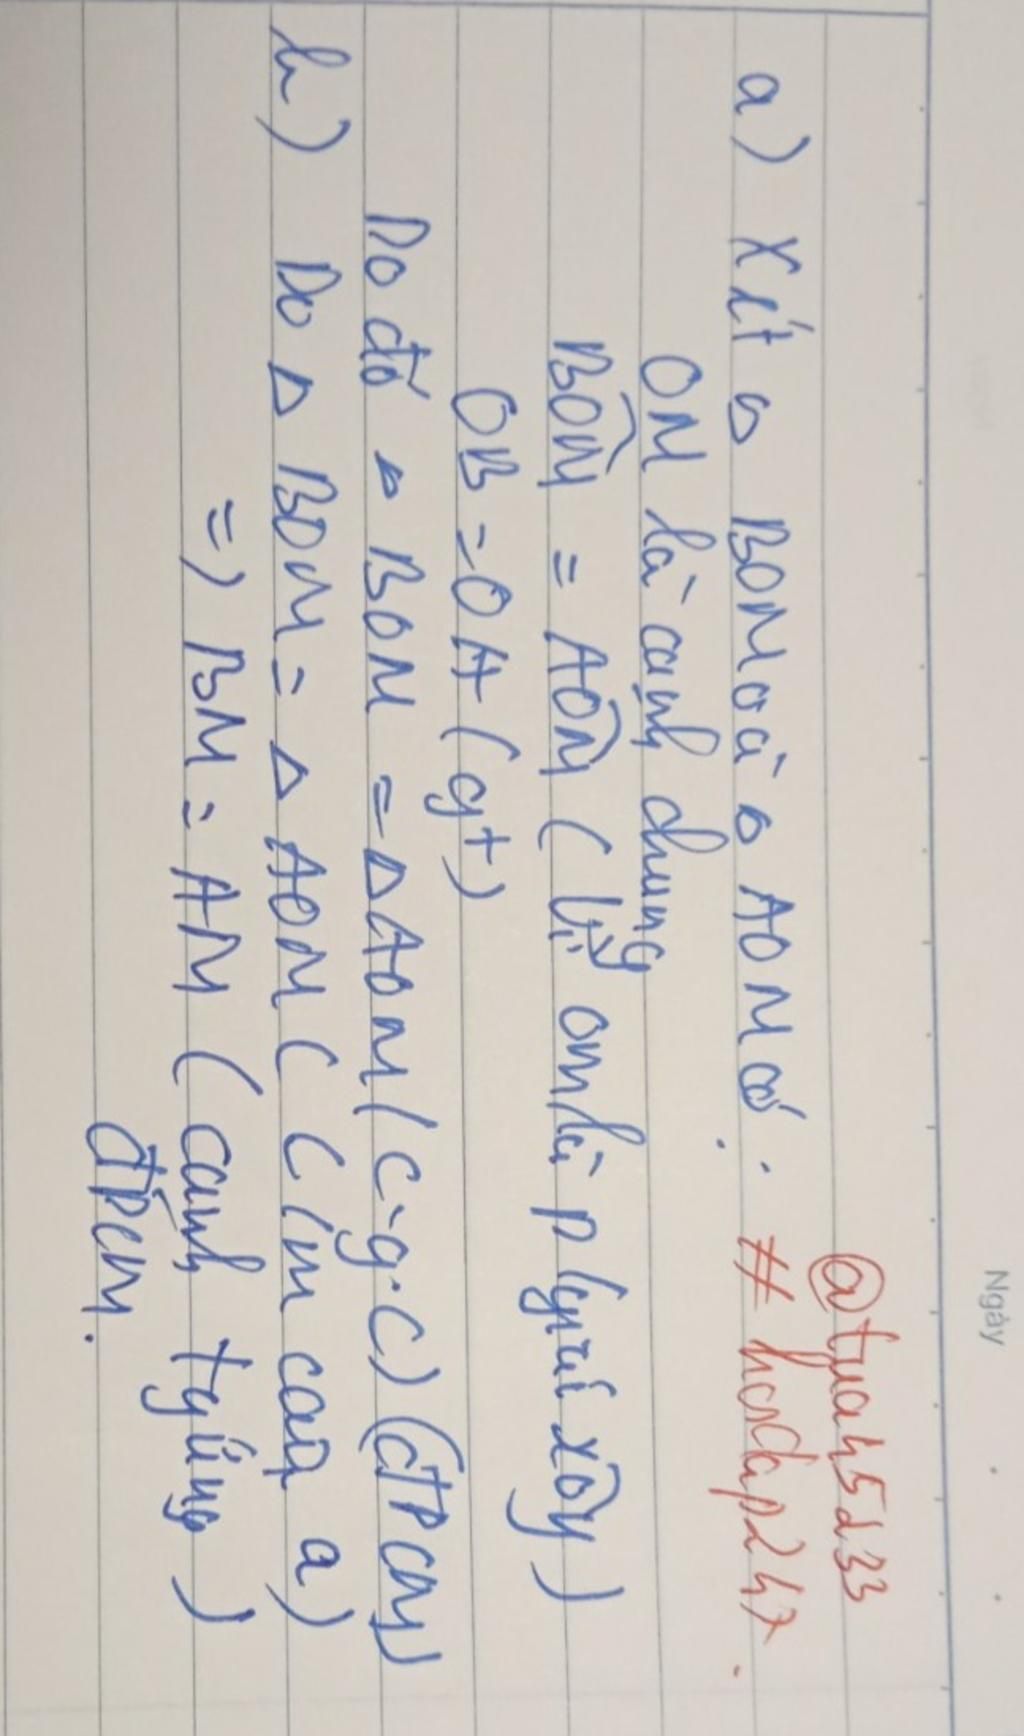 Ngày
@tuan5d33
a) Xét △ BOM và △ AOM có: # hoidap247.
OM là cạnh chung
BÔM = AÔM ( vì OM là p/giác xÔy)
OB = OA (gt)
Do đó △ BOM = △AOM (c-g.c) (đpcm)
b) Do △ BOM = △ AOM ( C/m câu a)
=) BM = AM ( cạnh tg ứng )
đpcm.